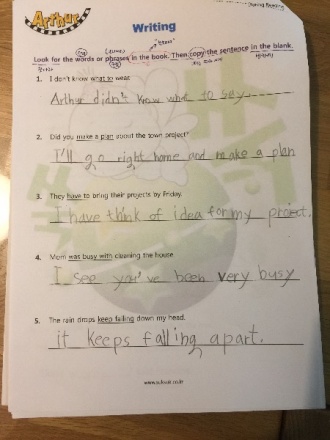 Arthur
Writing
Look for the words or phrases in the book. Then copy the sentence in the blank.
1. I don't know what to wear.
Arthur didn't know what to say
2. Did you make a plan about the town project?
I'll go right home and make a plan
3. They have to bring their projects by Friday.
I have think of idea for my project.
4. Mom was busy with cleaning the house
I see you've been very busy
5. The rain drops keep falling down my head.
it keeps falling apart.